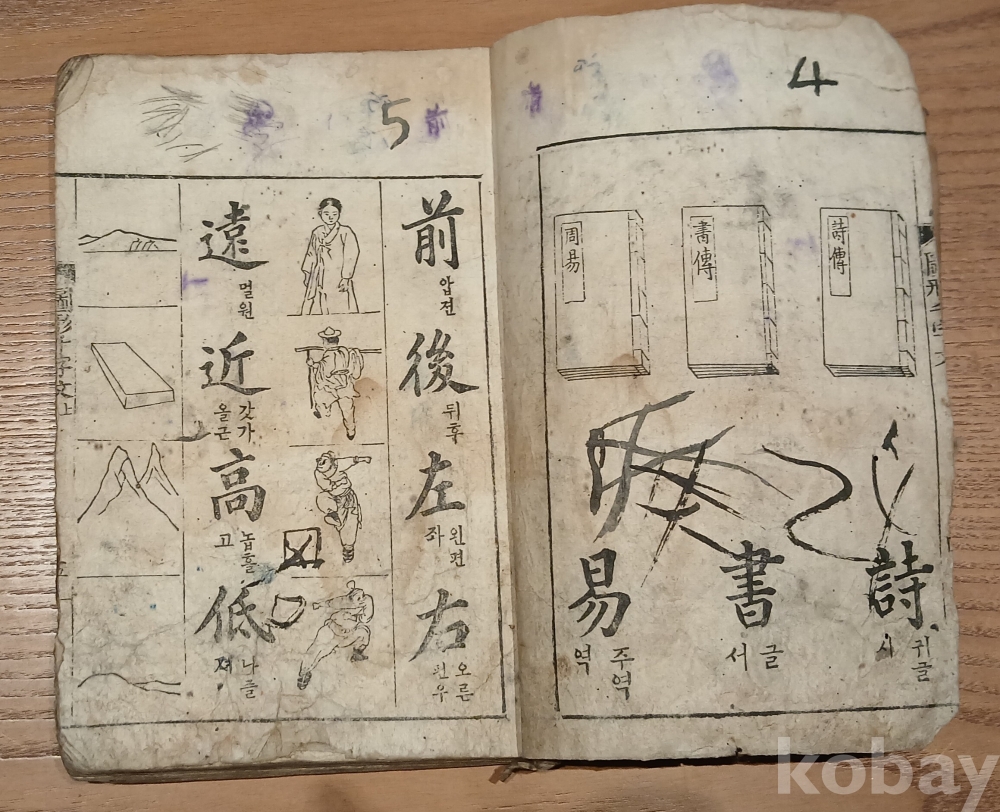 4
詩傳
書傳
周易
詩
귀글
시
書
글
서
易
주역
역
5
前
압젼
後
뒤후
左
왼편
좌
右
오른
편우
遠
멀원
近
갓가
올근
高
놉흘
고
低
나즐
져
kobay